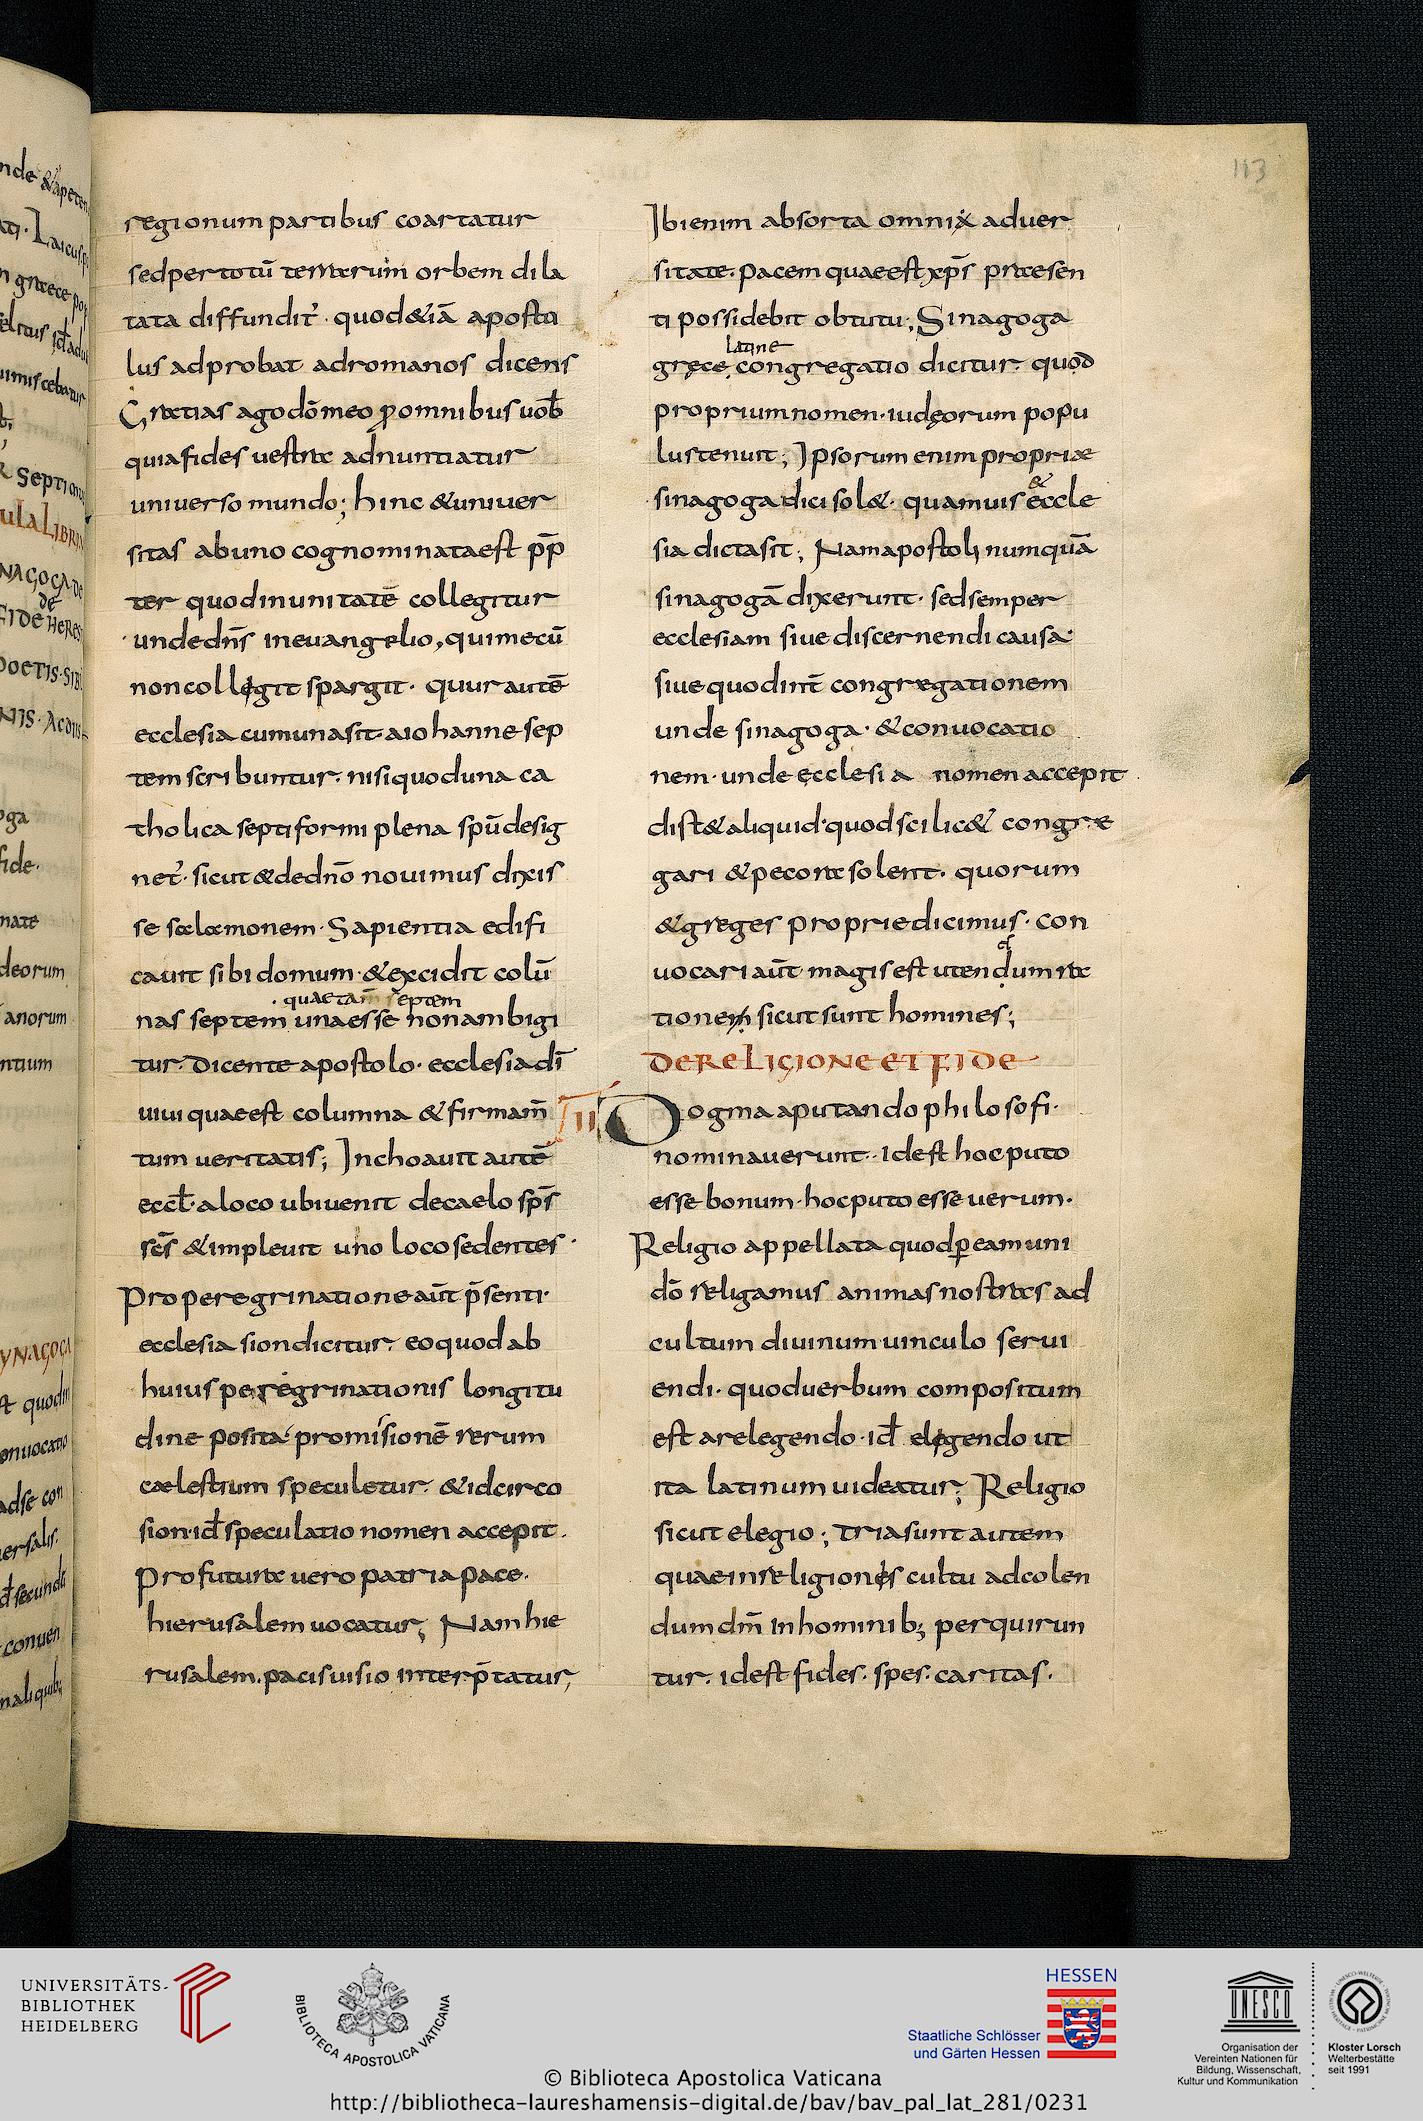 113
regionum partibus coartatur
sed per totū terrarum orbem dila
tata diffundit̉. quod &iā aposto
lus adprobat ad romanos dicens
Gratias ago dō meo ꝓ omnibus uob̄
quia fides uestra adnuntiatur
uniuerso mundo; hinc & uniuer
sitas ab uno cognominata est pp̄
ter quod in unitatē collegitur
unde dn̄s in euangelio, qui mecū
non collegit spargit. quur autē
ecclesia cum una sit a iohanne sep
tem scribuntur. nisi quod una ca
tholica septiformi plena spū desig
net̉. sicut & de dn̄o nouimus dixis
se salomonem. Sapientia edifi
cauit sibi domum. & excidit colū
quae tam̄ septem
nas septem una esse non ambigi
tur. Dicente apostolo. ecclesia dī
uiui quae est columna & firmam̄
tum ueritatis; Inchoauit autē
eccl̄. a loco ubi uenit de caelo sp̄s
sc̄s & impleuit uno loco sedentes.
Pro peregrinatione aūt p̄senti.
ecclesia sion dicitur. eo quod ab
huius peregrinationis longitu
dine posita promisionē rerum
caelestium speculetur. & idcirco
sion. id̄ speculatio nomen accepit.
Pro futura uero patria pace.
hierusalem uocatur; Nam hie
rusalem. pacis uisio interp̄tatur;
Ibi enim absorta omnix aduer
sitate. pacem quae est xp̄s praesen
ti possidebit obtutu; Sinagoga
latine
gręce congregatio dicitur. quod
proprium nomen. iudęorum popu
lus tenuit; Ipsorum enim propriæ
sinagoga dici sol&. quamuis & eccle
sia dicta sit; Nam apostoli numquā
sinagogā dixerunt. sed semper
ecclesiam siue discernendi causa
siue quod int̄ congregationem
unde sinagoga. & conuocatio
nem. unde ecclesia nomen accepit
dist& aliquid. quod scilic& congre
gari & pecora solent. quorum
& greges proprie dicimus. con
uocari aūt magis est utendum ra
tionem sicut sunt homines;
DE RELIGIONE ET FIDE
III Dogma a putando philosofi.
nominauerunt. id est hoc puto
esse bonum. hoc puto esse uerum.
Religio appellata quod ꝑ eam uni
dō religamus animas nostras ad
cultum diuinum uinculo serui
endi. quod uerbum compositum
est a relegendo. id̄ elegendo ut
ita latinum uideatur; Religio
sicut elegio; Tria sunt autem
quae in religionis cultu ad colen
dum dm̄ in hominib; perquirun
tur. id est fides. spes. caritas.
UNIVERSITÄTS-
BIBLIOTHEK
HEIDELBERG
BIBLIOTECA APOSTOLICA VATICANA
HESSEN
Staatliche Schlösser
und Gärten Hessen
UNESCO
Organisation der
Vereinten Nationen für
Bildung, Wissenschaft,
Kultur und Kommunikation
Kloster Lorsch
Welterbestätte
seit 1991
© Biblioteca Apostolica Vaticana
http://bibliotheca-laureshamensis-digital.de/bav/bav_pal_lat_281/0231